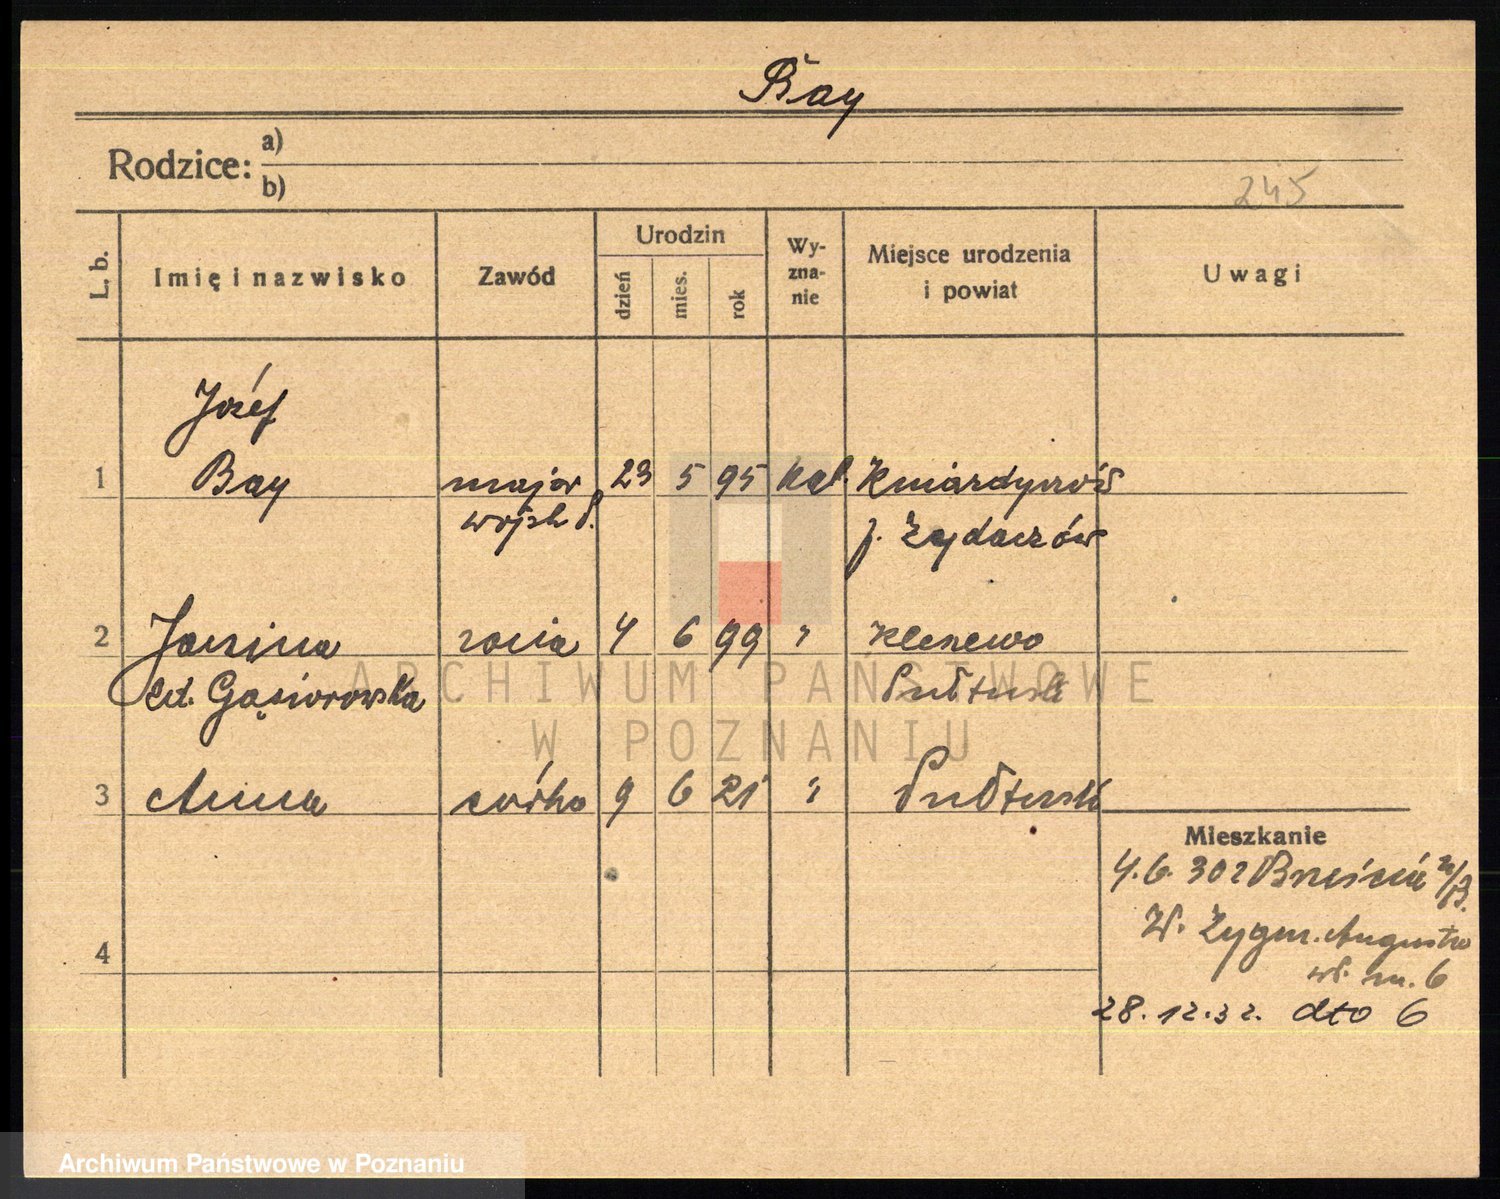 Bay
Rodzice: a)
b)
245
L. b.
Imię i nazwisko
Zawód
Urodzin
dzień
mies.
rok
Wy-
zna-
nie
Miejsce urodzenia
i powiat
Uwagi
Józef
1 Bay major 23 5 95 kat.
wojsk P.
p. Żydaczów
2 Janina żona 4 6 99 " Klenewo
Gąsiorowska Pułtusk
3 Anna córka 9 6 21 " Pułtusk
Mieszkanie
4.6.30 z Brześcia n/B.
W. Zygm. Augusta
wł. m. 6
4
28.12.32. dto 6
ARCHIWUM PAŃSTWOWE
W POZNANIU
Archiwum Państwowe w Poznaniu